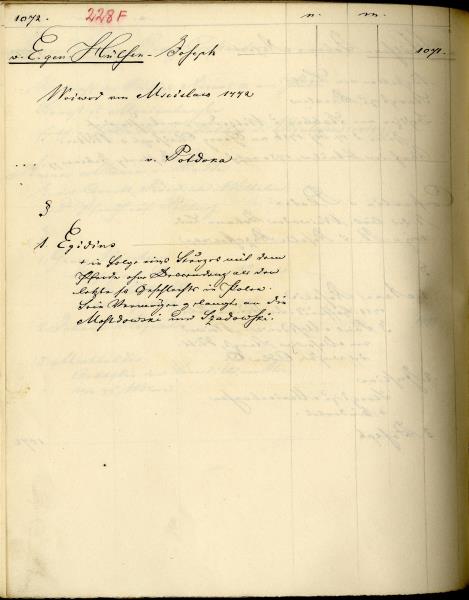 1072. 228F n. m.
v. E. gen Hülsen - Joseph 1071.
Woiwod von Mscislaw 1772
v. Potocka
§
1 Egidius
+ in Folge eines Sturzes mit dem
Pferde ohne Descendenz als der
letzte des Geschlechts in Polen.
Sein Vermögen gelangte an die
Mostowski und Szadowski.